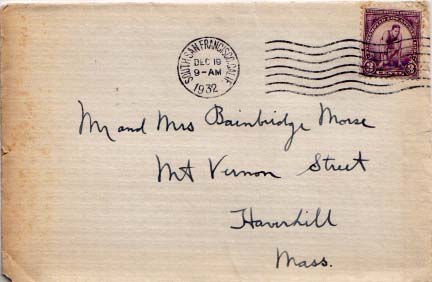 SOUTH SAN FRANCISCO, CALIF.
DEC 19
9-AM
1932
3 CENTS 3
Mr and Mrs Bainbridge Morse
Mt Vernon Street
Haverhill
Mass.